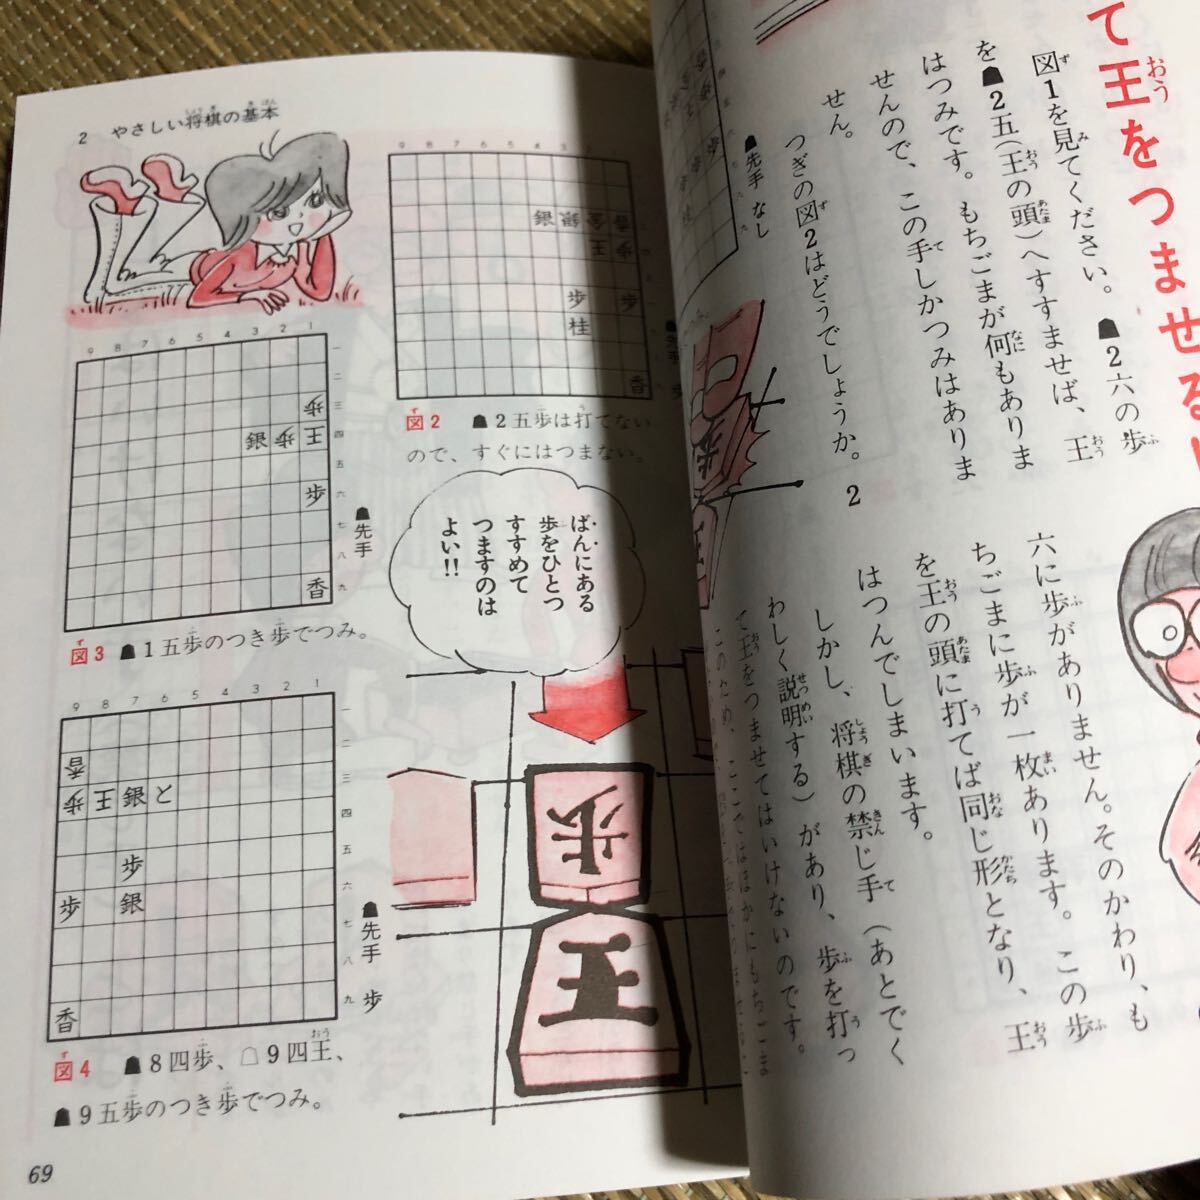 て王をつませる
図1を見てください。☗2六の歩
を☗2五(王の頭)へすすませば、王
はつみです。もちごまが何もありま
せんので、この手しかつみはありま
せん。
つぎの図2はどうでしょうか。2
六に歩がありません。そのかわり、も
ちごまに歩が一枚あります。この歩
を王の頭に打てば同じ形となり、王
はつんでしまいます。
しかし、将棋の禁じ手(あとでく
わしく説明する)があり、歩を打っ
て王をつませてはいけないのです。
☗先手 なし
2 やさしい将棋の基本
9 8 7 6 5 4 3
銀 金 香
王 歩
歩 歩
桂
香
図2 ☗2五歩は打てない
ので、すぐにはつまない。
9 8 7 6 5 4 3 2 1
一
二
三
四
五
六
七
八
九
歩
銀 歩 王
歩
香
☗先手
図3 ☗1五歩のつき歩でつみ。
ばんにある
歩をひとつ
すすめて
つますのは
よい!!
歩
王
9 8 7 6 5 4 3 2 1
一
二
三
四
五
六
七
八
九
香
歩 王 銀 と
歩
歩 銀
香
☗先手 歩
図4 ☗8四歩、☖9四王、
☗9五歩のつき歩でつみ。
69